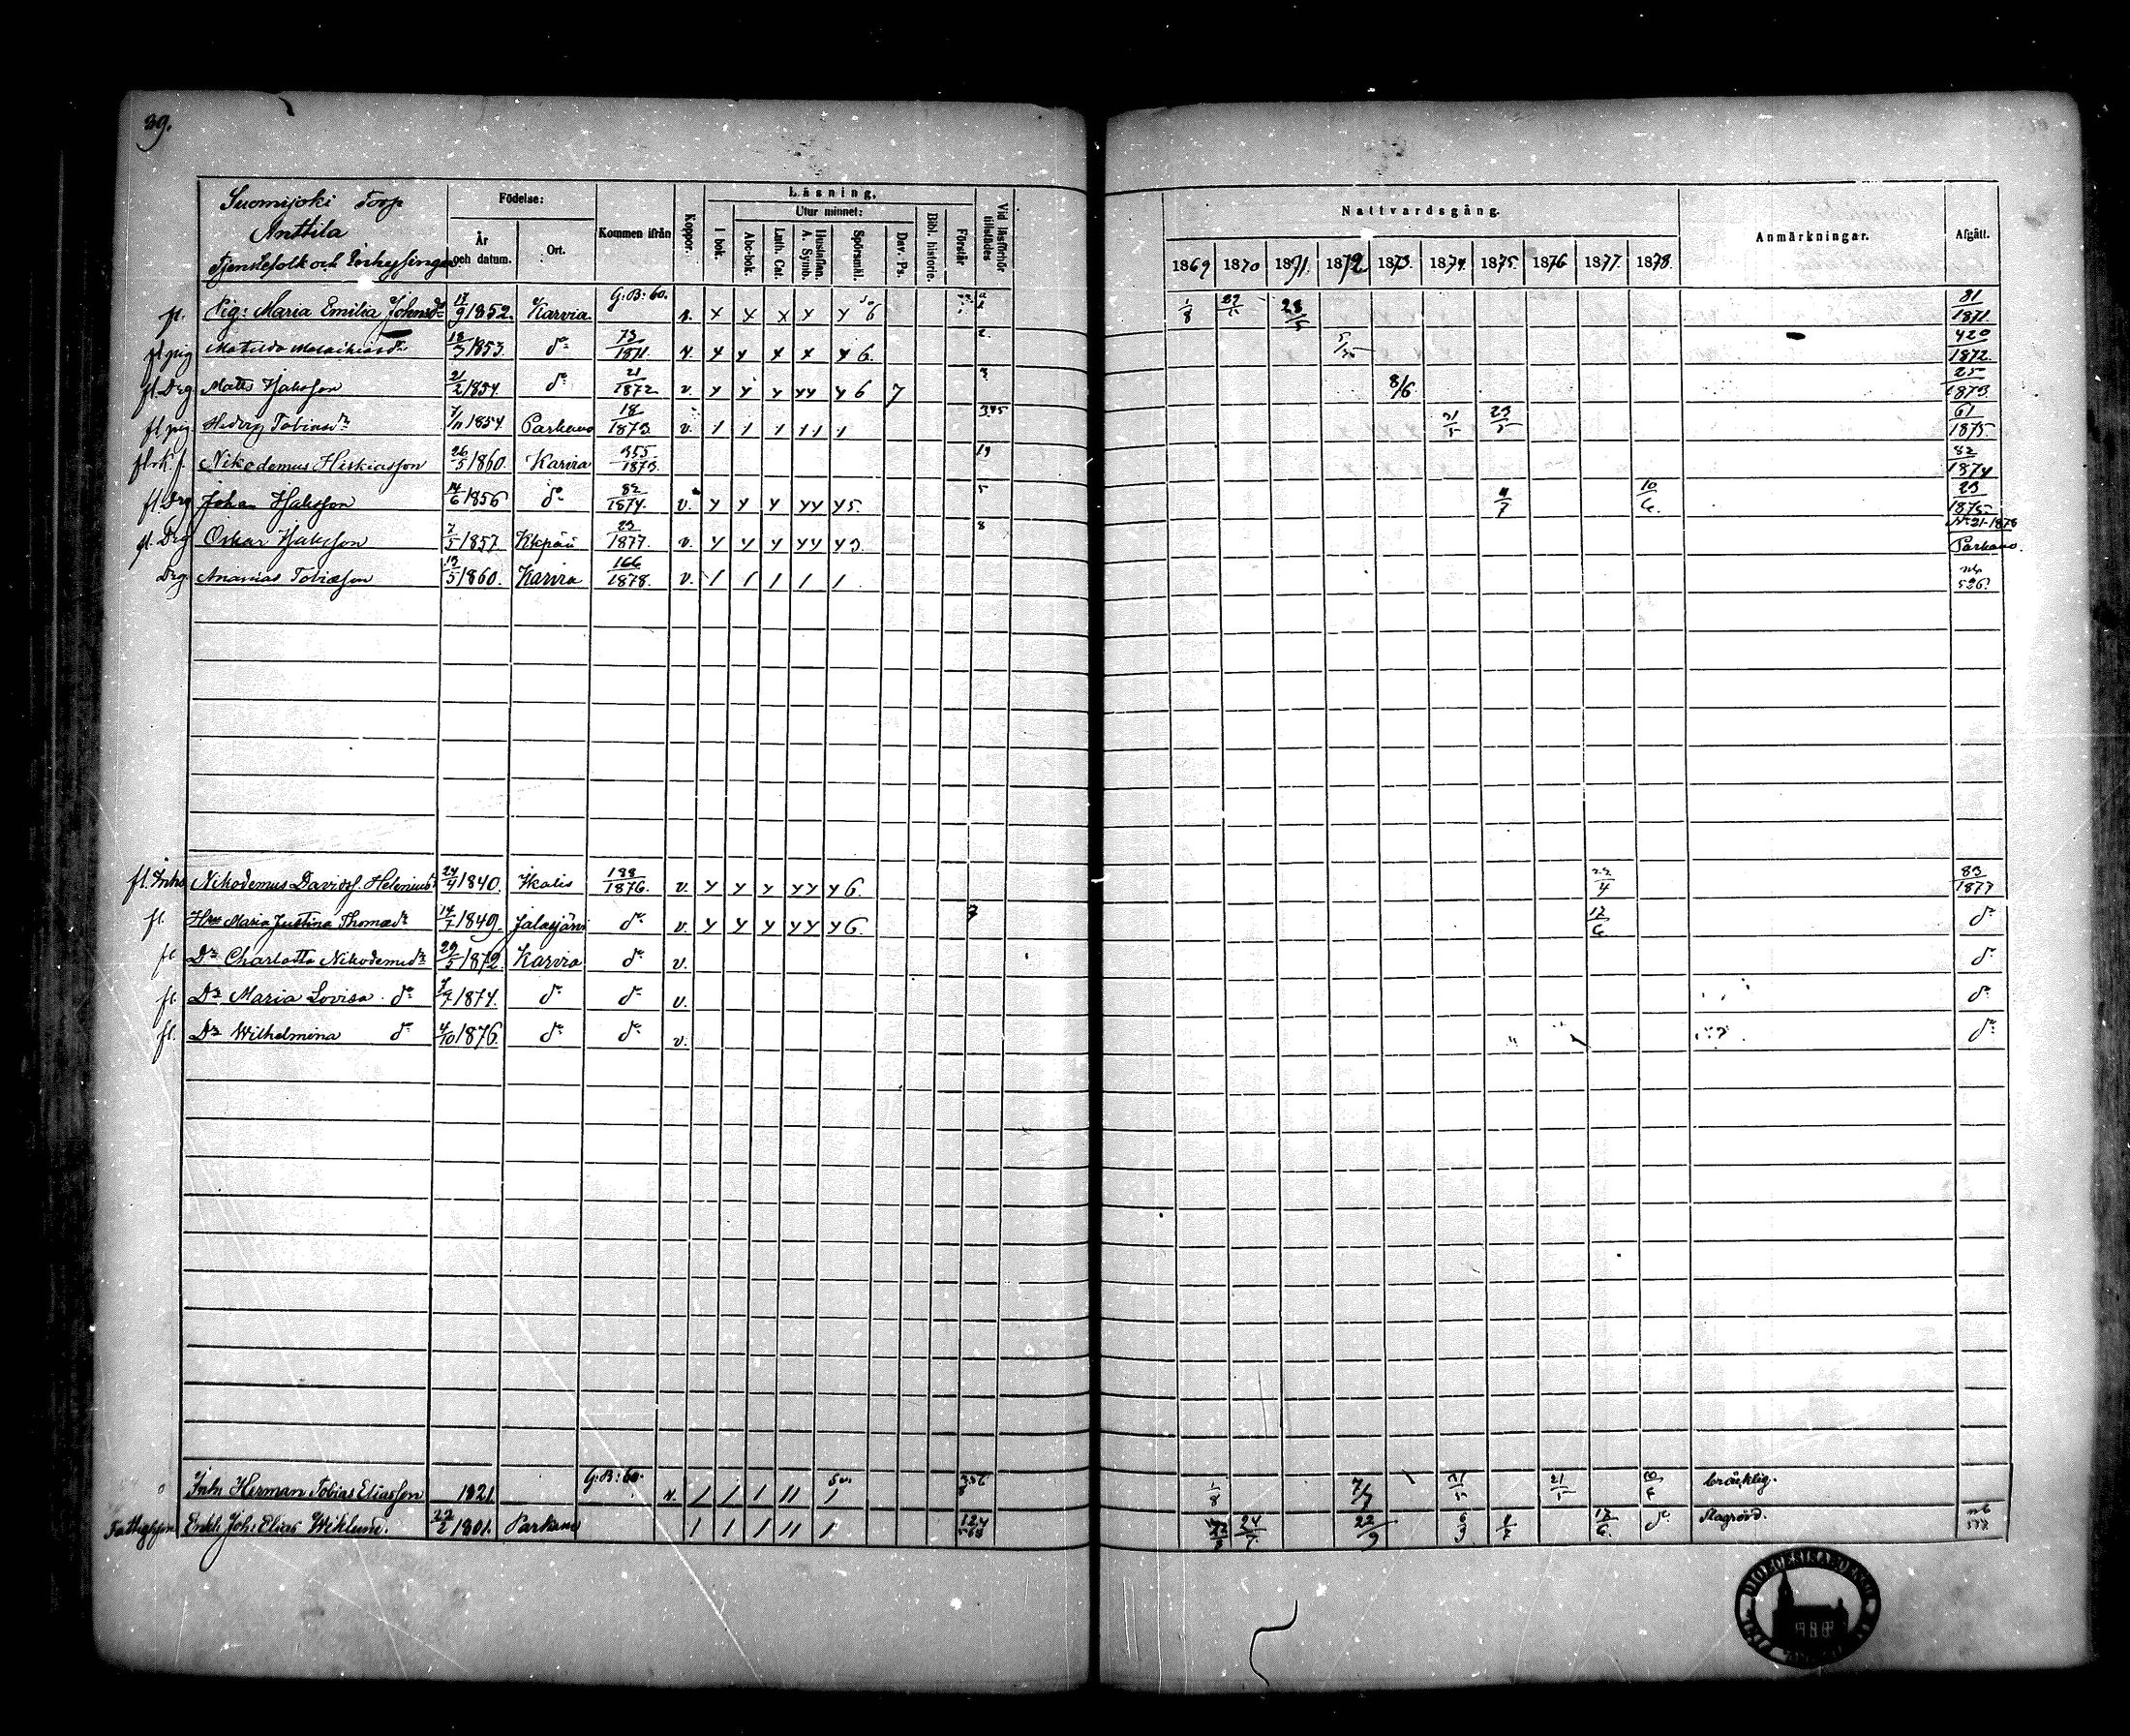 39.
Suomijoki Torp
Anttila
Tjenstefolk och Inhysingar.
Födelse:
År och datum.
Ort.
Kommen ifrån
Koppor.
Läsning.
I bok.
Utur minnet:
Abc-bok.
Luth. Cat.
Hustaflan. A. Symb.
Spörsmål.
Dav. Ps.
Bibl. historie.
Förstår
Vid läsförhör tillstädes
Nattvardsgång.
1869 1870 1871. 1872 1873. 1874. 1875. 1876 1877. 1878.
Anmärkningar.
Afgått.
fl. Pig: Maria Emilia Johansdr 17/9 1852. Karvia G:B: 60. v. 1/8 28/5 81/1871
fl. pig Matilda Malakiasdr 18/3 1853. do 73/1871. v. 6. 2. 420/1872.
fl. Drg Matts Isaksson 21/2 1854. do 21/1872 v. 6 7 3 8/6 25/1873.
fl. pig Hedvig Tobiasdr 7/11 1854 Parkano 18/1873 v. 1 1 1 1 1 1 345 31/5 23/5 61/1875.
Nikodemus Hiskiasson 26/5 1860. Karvia 355/1873. 19 82/1874
fl. Drg Johan Isaksson 14/6 1856 do 82/1874. v. 5. 5 4/7 10/6. 23/1875
fl. Drg Oskar Isaksson 7/5 1857 23/1877. v. 3. 8 No 21-1878 Parkano.
Drg. Ananias Tobiasson 13/5 1860. Karvia 166/1878. v. 1 1 1 1 1 526.
fl. Inhs Nikodemus Davidsf. Helenius 24/4 1840. Ikalis 188/1876. v. 6. 22/4 83/1877
fl. Hru Maria Justina Thomasdr 14/7 1849. Jalasjärvi do v. 6. 7 17/6 do
fl Dr Charlotta Nikodemidr 29/5 1872. Karvia do v. do
fl. Dr Maria Lovisa do 7/7 1874. do do v. do
fl. Dr Wilhelmina do 4/10 1876. do do v. do
Inh. Herman Tobias Eliasson 1821. G:B: 60. v. 1 1 1 11 1 356 1/8 7/7 31/5 21/5 bräcklig.
Fattighjon Enkl. Joh: Elias Wiklund. 22/2 1801. Parkano 1 1 1 11 1 124 24/7. 22/9 6/9 17/6. do
DIOECESIS ABOENSIS